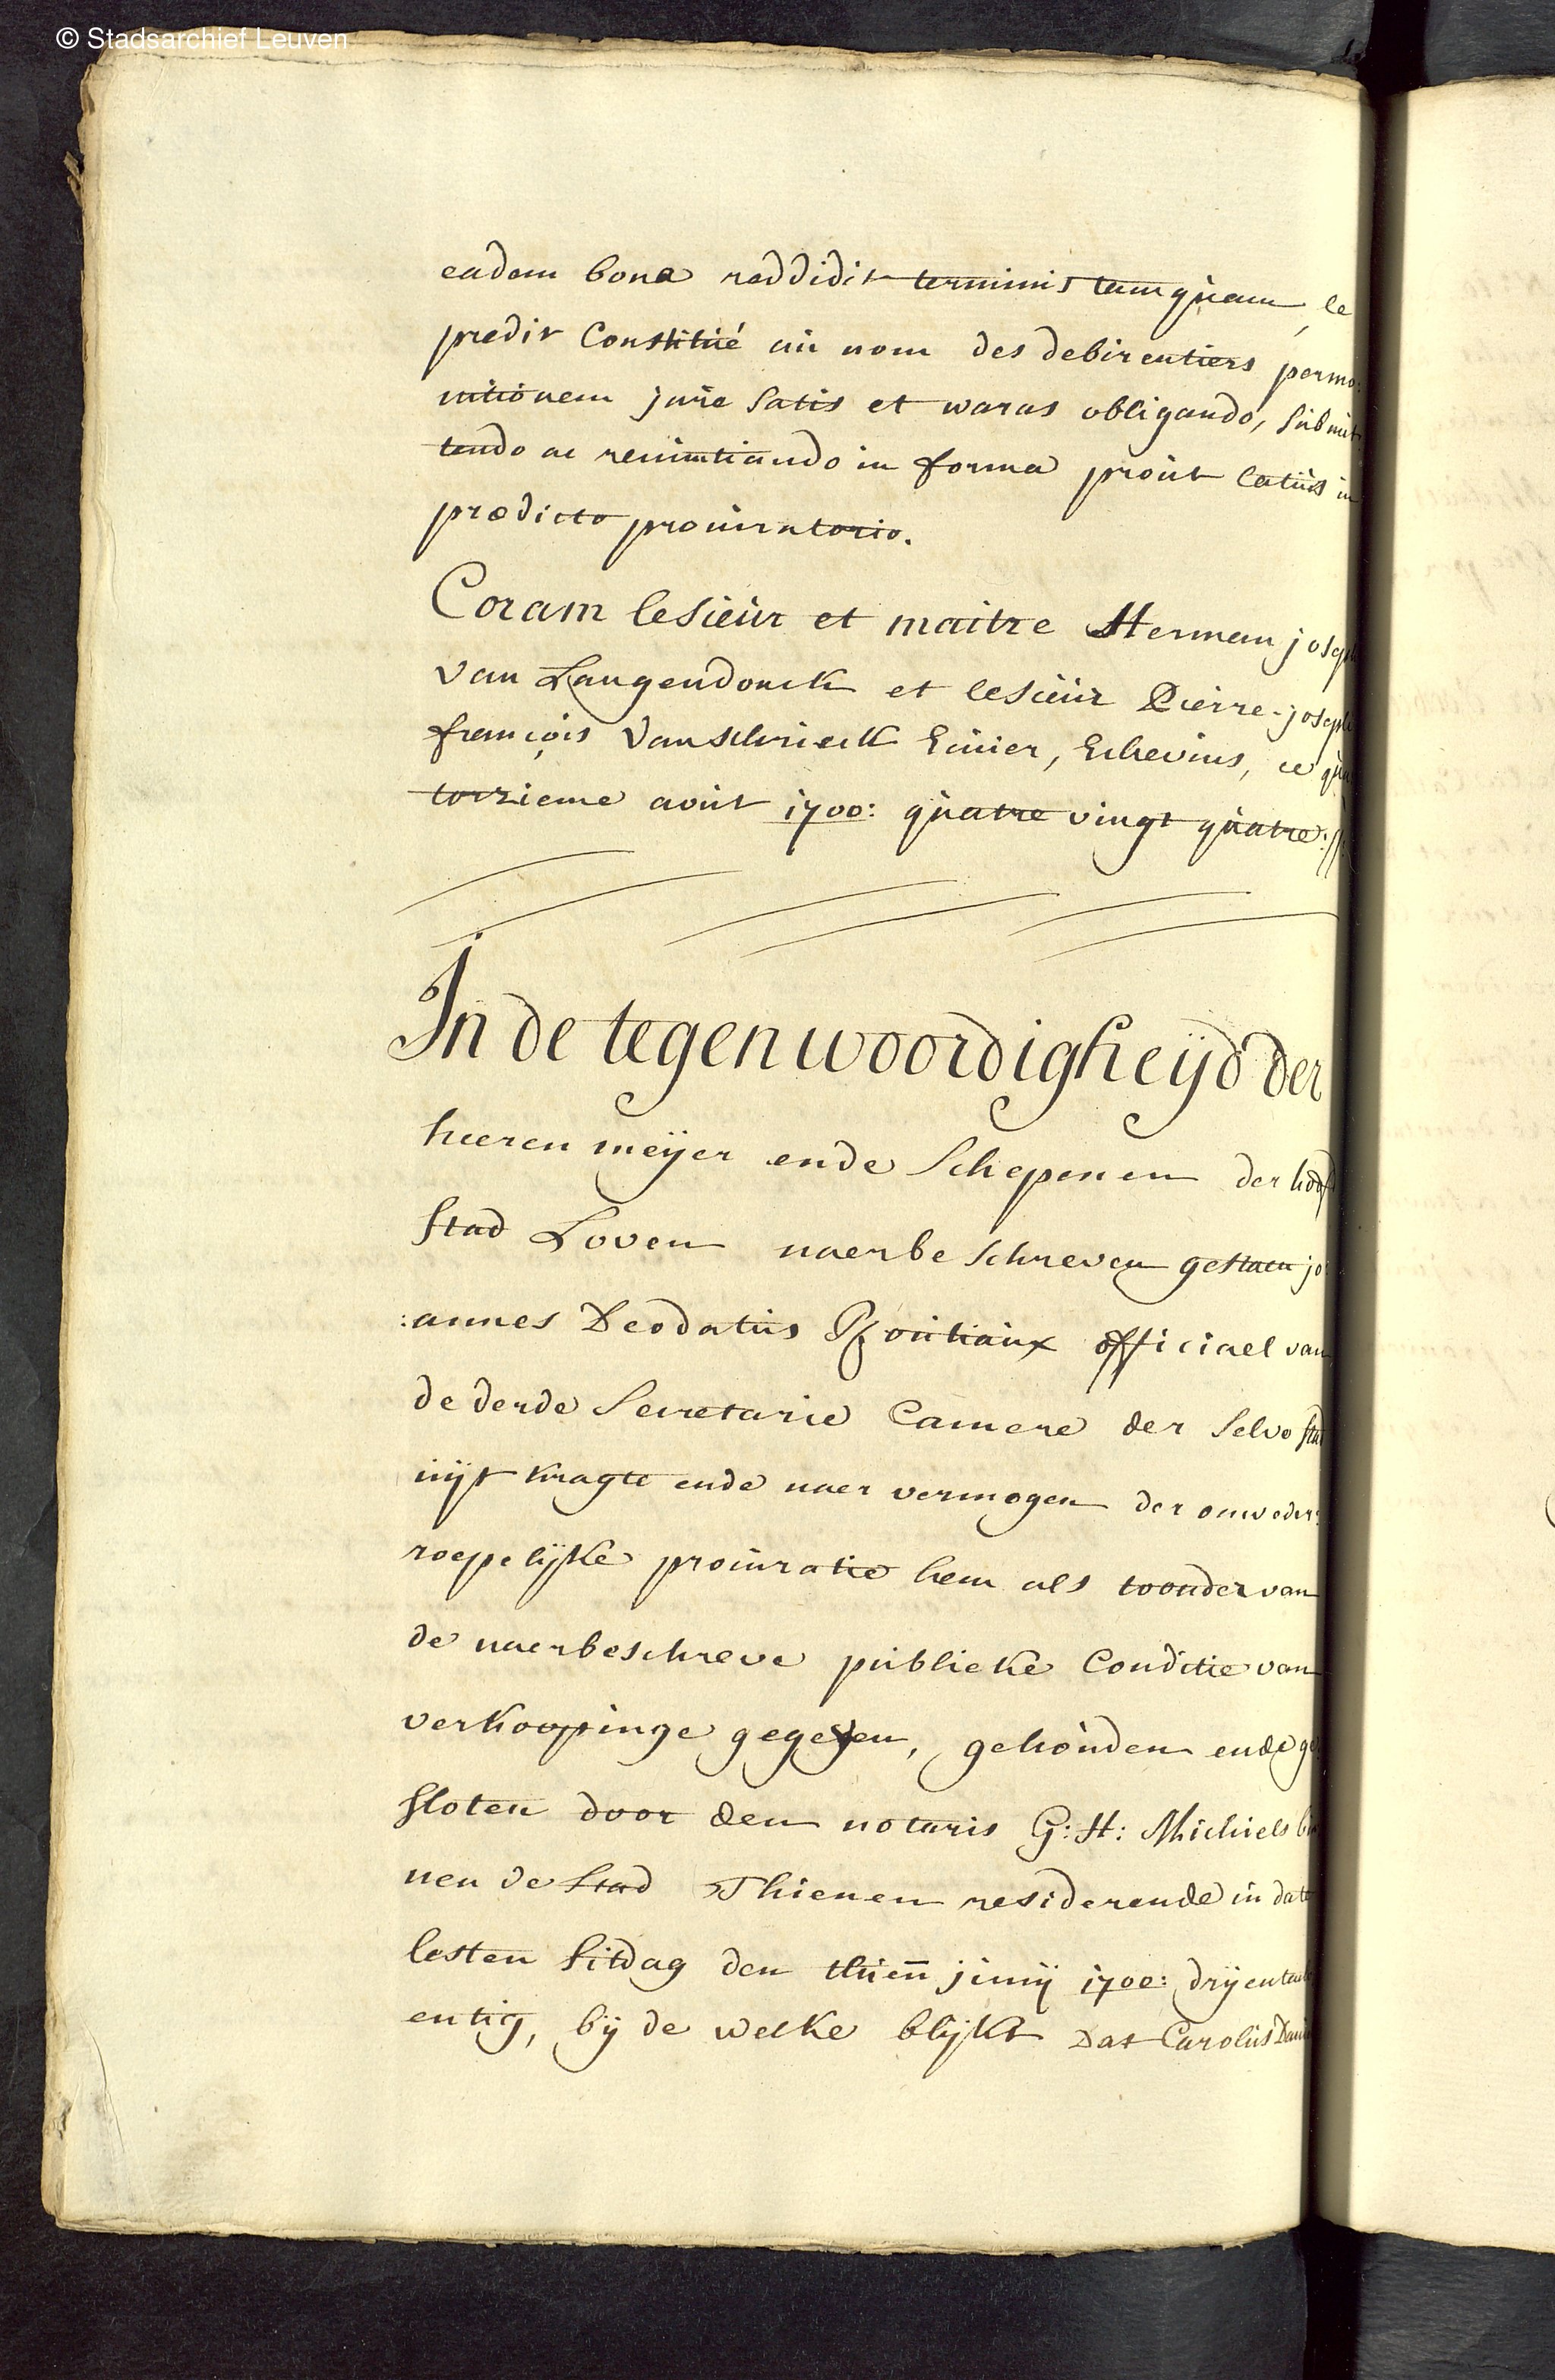 © Stadsarchief Leuven
eadem bona reddidit terminis tamquam, le
predit Constitué au nom des debirentiers permo:
nitionem jure Satis et waras obligando, Submit
tendo ac renuntiando in forma prout latius in
prædicto procuratorio.
Coram lesieur et maitre Herman joseph
van Langendonck et lesieur Pierre-joseph
françois Vanschrieck Ecuier, Echevins, ce qua
torzieme aout 1700: quatre vingt quatre://
In de tegenwoordigheijd der
heeren meijer ende Schepenen der hooft
Stad Loven naerbeschreven gestaen jo
:annes Deodatus officiael van
de derde Secretarie Camere der Selve sta
uijt kragte ende naer vermogen der onweder:
roepelijke procuratie hem als toonder van
de naerbeschreve publieke Conditie van
verkoopinge gegeven, gehouden ende ge
sloten door den notaris G: H: Michiels bi
nen de Stad Thienen residerende in dato
lesten Sitdag den thien junij 1700: drijentach
entig, bij de welke blijkt dat Carolus